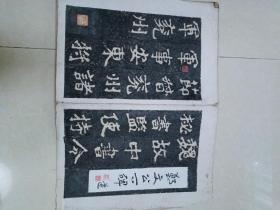 鄭文公下碑選
魏故中書令
秘書監使持
節督兖州諸
軍事安東將
軍兖州